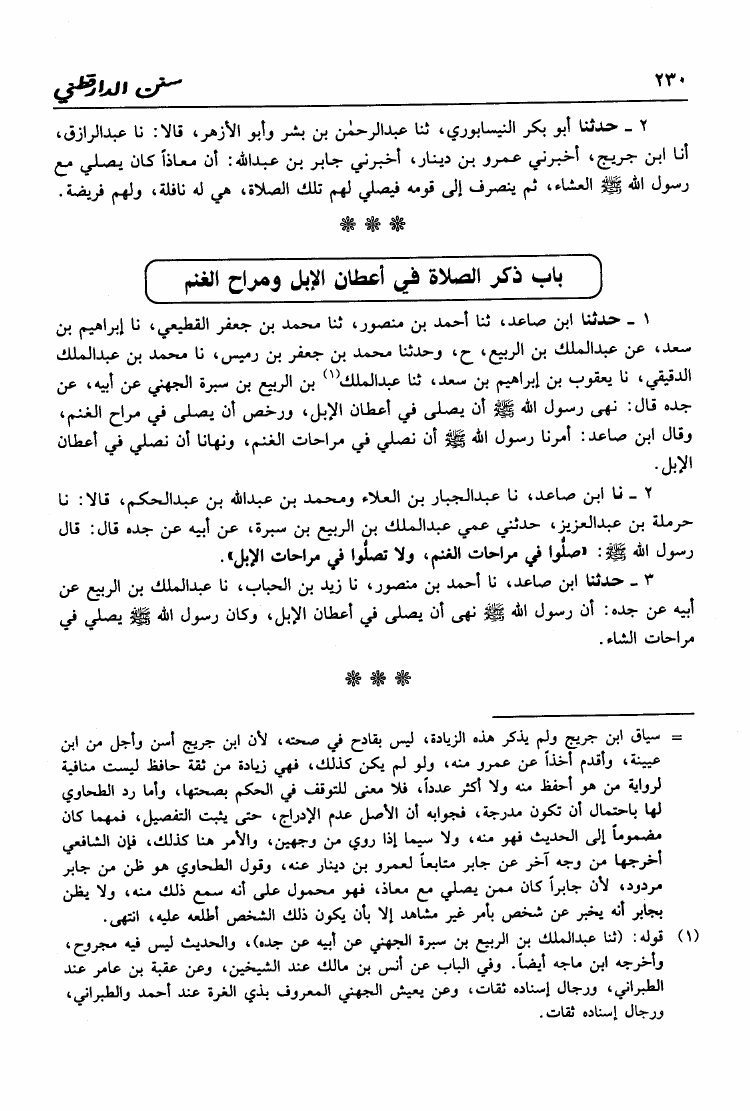 ٢٣٠
سنن الدارقطني
٢ ـ حدثنا أبو بكر النيسابوري، ثنا عبدالرحمٰن بن بشر وأبو الأزهر، قالا: نا عبدالرازق،
أنا ابن جريج، أخبرني عمرو بن دينار، أخبرني جابر بن عبدالله: أن معاذاً كان يصلي مع
رسول الله ﷺ العشاء، ثم ينصرف إلى قومه فيصلي لهم تلك الصلاة، هي له نافلة، ولهم فريضة.
❊ ❊ ❊
باب ذكر الصلاة في أعطان الإبل ومراح الغنم
١ ـ حدثنا ابن صاعد، ثنا أحمد بن منصور، ثنا محمد بن جعفر القطيعي، نا إبراهيم بن
سعد، عن عبدالملك بن الربيع، ح، وحدثنا محمد بن جعفر بن رميس، نا محمد بن عبدالملك
الدقيقي، نا يعقوب بن إبراهيم بن سعد، ثنا عبدالملك(١) بن الربيع بن سبرة الجهني عن أبيه، عن
جده قال: نهى رسول الله ﷺ أن يصلى في أعطان الإبل، ورخص أن يصلى في مراح الغنم،
وقال ابن صاعد: أمرنا رسول الله ﷺ أن نصلي في مراحات الغنم، ونهانا أن نصلي في أعطان
الإبل.
٢ ـ نا ابن صاعد، نا عبدالجبار بن العلاء ومحمد بن عبدالله بن عبدالحكم، قالا: نا
حرملة بن عبدالعزيز، حدثني عمي عبدالملك بن الربيع بن سبرة، عن أبيه عن جده قال: قال
رسول الله ﷺ: «صلُّوا في مراحات الغنم، ولا تصلُّوا في مراحات الإبل».
٣ ـ حدثنا ابن صاعد، نا أحمد بن منصور، نا زيد بن الحباب، نا عبدالملك بن الربيع عن
أبيه عن جده: أن رسول الله ﷺ نهى أن يصلى في أعطان الإبل، وكان رسول الله ﷺ يصلي في
مراحات الشاء.
❊ ❊ ❊
= سياق ابن جريج ولم يذكر هذه الزيادة، ليس بقادح في صحته، لأن ابن جريج أسن وأجل من ابن
عيينة، وأقدم أخذاً عن عمرو منه، ولو لم يكن كذلك، فهي زيادة من ثقة حافظ ليست منافية
لرواية من هو أحفظ منه ولا أكثر عدداً، فلا معنى للتوقف في الحكم بصحتها، وأما رد الطحاوي
لها باحتمال أن تكون مدرجة، فجوابه أن الأصل عدم الإدراج، حتى يثبت التفصيل، فمهما كان
مضموماً إلى الحديث فهو منه، ولا سيما إذا روي من وجهين، والأمر هنا كذلك، فإن الشافعي
أخرجها من وجه آخر عن جابر متابعاً لعمرو بن دينار عنه، وقول الطحاوي هو ظن من جابر
مردود، لأن جابراً كان ممن يصلي مع معاذ، فهو محمول على أنه سمع ذلك منه، ولا يظن
بجابر أنه يخبر عن شخص بأمر غير مشاهد إلا بأن يكون ذلك الشخص أطلعه عليه، انتهى.
(١) قوله: (ثنا عبدالملك بن الربيع بن سبرة الجهني عن أبيه عن جده)، والحديث ليس فيه مجروح،
وأخرجه ابن ماجه أيضاً. وفي الباب عن أنس بن مالك عند الشيخين، وعن عقبة بن عامر عند
الطبراني، ورجال إسناده ثقات، وعن يعيش الجهني المعروف بذي الغرة عند أحمد والطبراني،
ورجال إسناده ثقات.